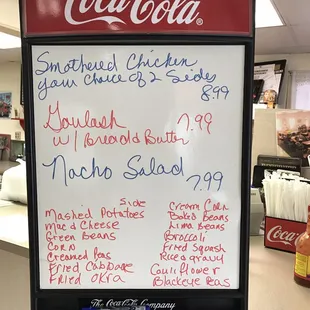 Coca-Cola
Smothered Chicken
your Choice of 2 Sides
8.99
Goulash 7.99
w/ Bread and Butter
Nacho Salad
7.99
Side
Mashed Potatoes
Mac & Cheese
Green Beans
Corn
Creamed Peas
Fried Cabbage
Fried Okra
Cream Corn
Baked Beans
Lima Beans
Broccoli
Fried Squash
Rice & gravy
Cauliflower
Blackeye Peas
The Coca-Cola Company
Coca-Cola